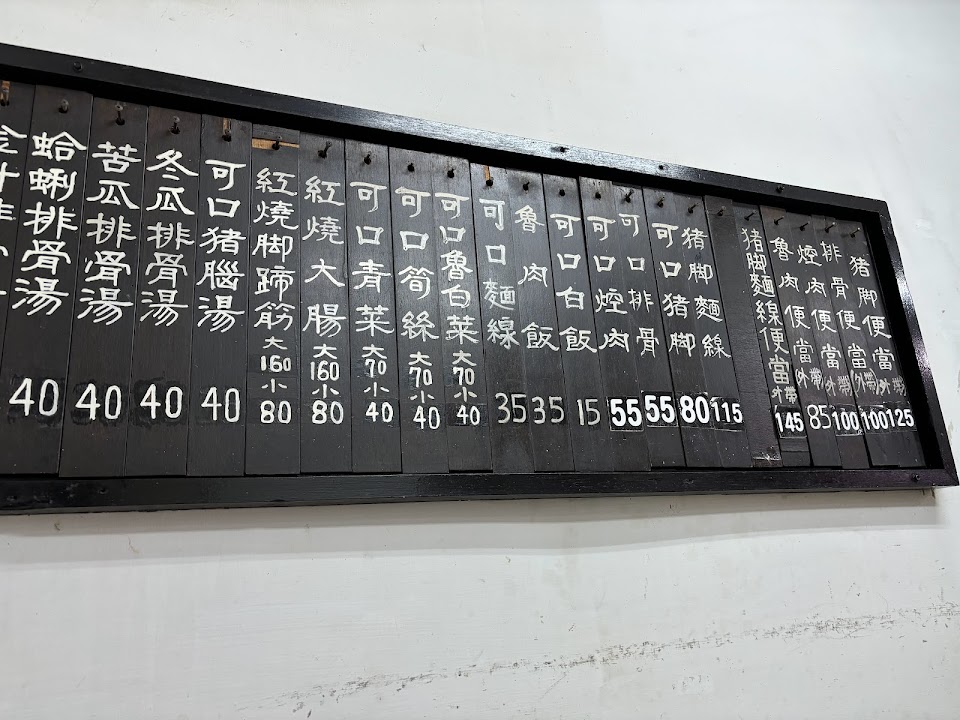 猪脚便當(外帶) 125
排骨便當(外帶) 100
焢肉便當(外帶) 100
魯肉便當(外帶) 85
猪脚麵線便當外帶 145
猪脚麵線 115
可口猪脚 80
可口排骨 55
可口焢肉 55
可口白飯 15
魯肉飯 35
可口麵線 35
可口魯白菜 大70小40
可口筍絲 大70小40
可口青菜 大70小40
紅燒大腸 大160小80
紅燒脚蹄筋 大160小80
可口猪腦湯 40
冬瓜排骨湯 40
苦瓜排骨湯 40
蛤蜊排骨湯 40